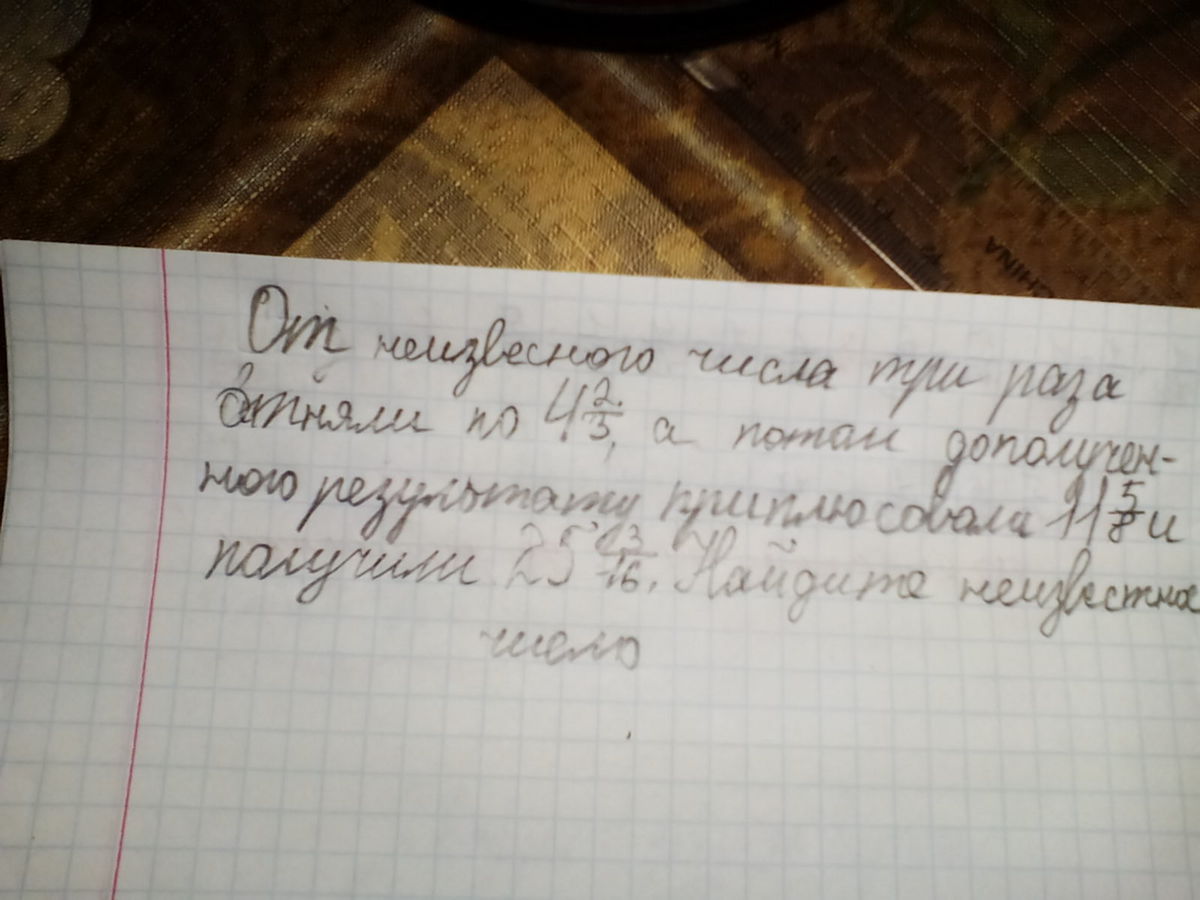 CHINA
От неизвесного числа три раза
отняли по 4 2/3, а потом дополучен-
ного результату приплюсовали 11 5/8 и
получили 25 13/16. Найдите неизвестное
число